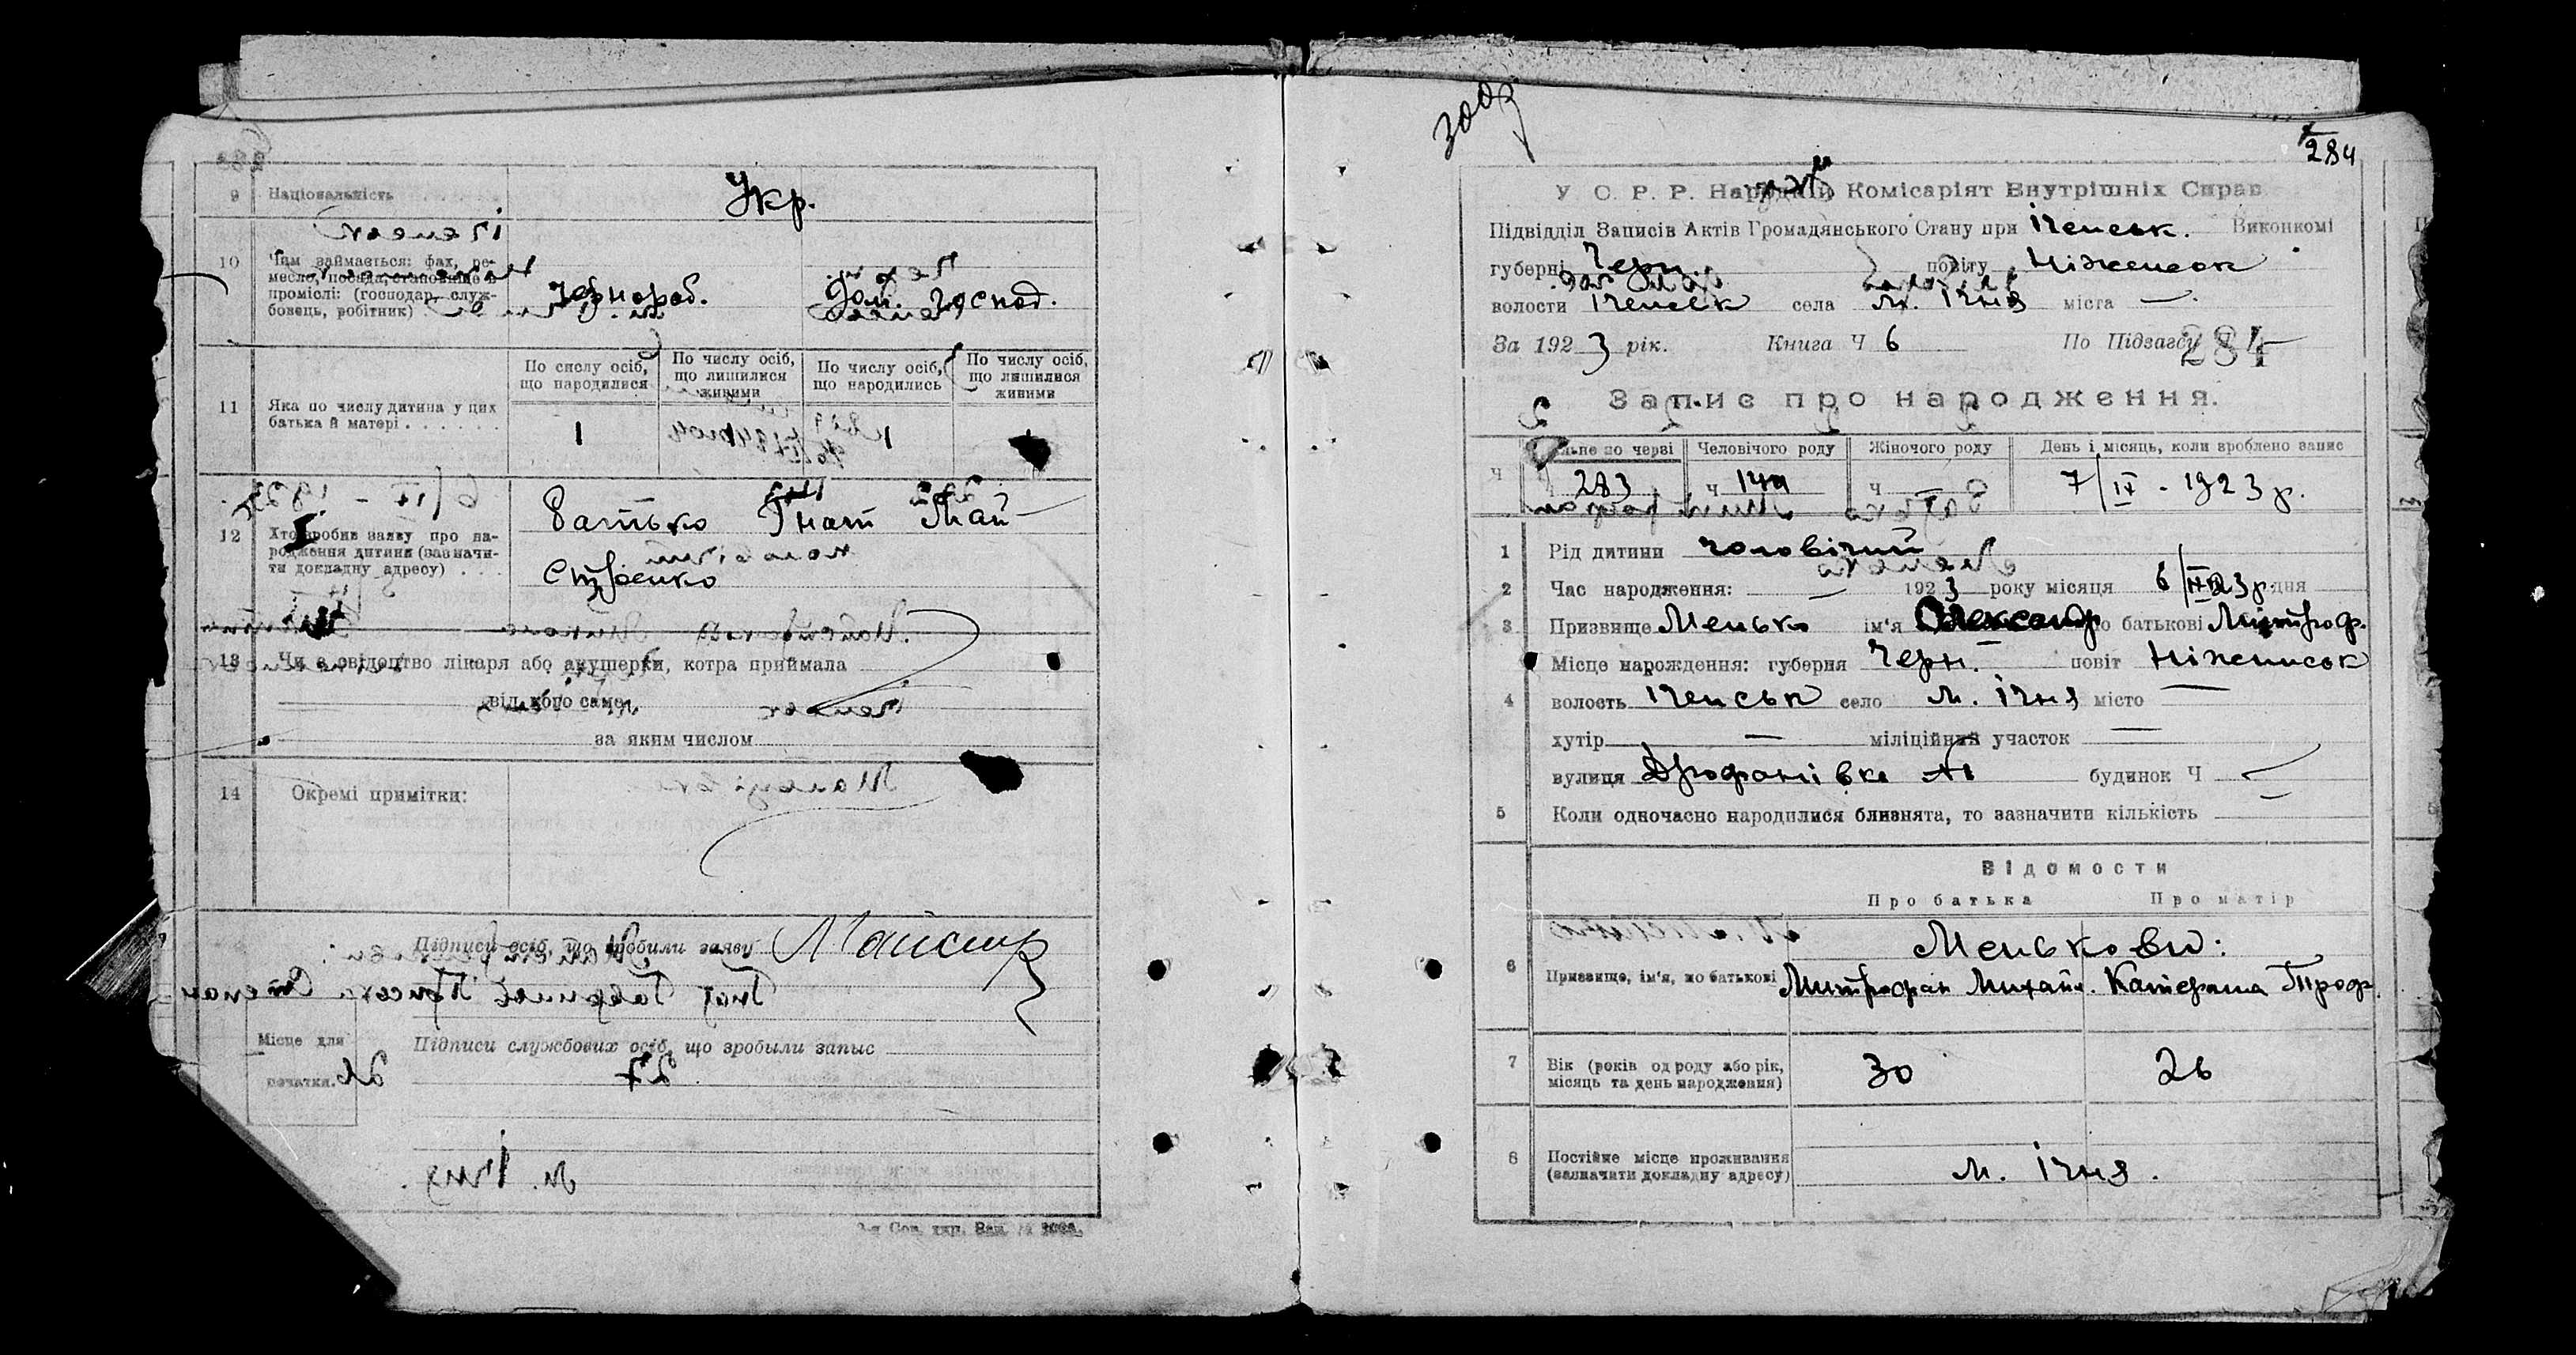 9 Національність Укр.
10 Чим займається: фах, ре-
месло, посада, становище в
проміслі: (господар, служ-
бовець, робітник) Чернороб. Дом. господ.
По числу осіб, що народилися
По числу осіб, що лишилися живими
По числу осіб, що народились
По числу осіб, що лишилися живими
11 Яка по числу дитина у цих
батька й матері 1 1
12 Хто зробив заяву про на-
родження дитини (зазначи-
ти докладну адресу)
батько Гнат Май-
стренко
13 Чи є свідоцтво лікаря або акушерки, котра приймала
від кого саме
за яким числом
14 Окремі примітки:
Підписи осіб, що зробили заяву
Підписи службових осіб, що зробыли запыс
Місце для
печатки.
284
У С. Р. Р. Народній Комісаріят Внутрішніх Справ
Підвідділ Записів Актів Громадянського Стану при Іченськ. Виконкомі
губерні Черн. повіту Ніженськ
волости Іченськ села м. Ічня міста —
За 1923 рік. Книга Ч 6 По Підзагсу Ч 284
Запис про народження.
Человічого роду Жіночого роду День і місяць, коли зроблено запис
Ч 283 Ч Ч 7/IX - 1923 р.
1 Рід дитини чоловічий
2 Час народження: 1923 року місяця 6 дня
3 Призвище Менько ім'я Олександр по батькові Митроф.
4 Місце нарождення: губерня Черн. повіт
волость Іченськ село м. Ічня місто —
хутір — міліційний участок —
вулиця будинок Ч
5 Коли одночасно народилися близнята, то зазначити кількість
Відомости
Про батька Про матір
Менькови:
6 Призвище, ім'я, по батькові Митрофан Михайл. Катерина Троф.
7 Вік (років од роду або рік,
місяць та день народження) 30 26
8 Постійне місце проживання
(зазначити докладну адресу) м. Ічня.